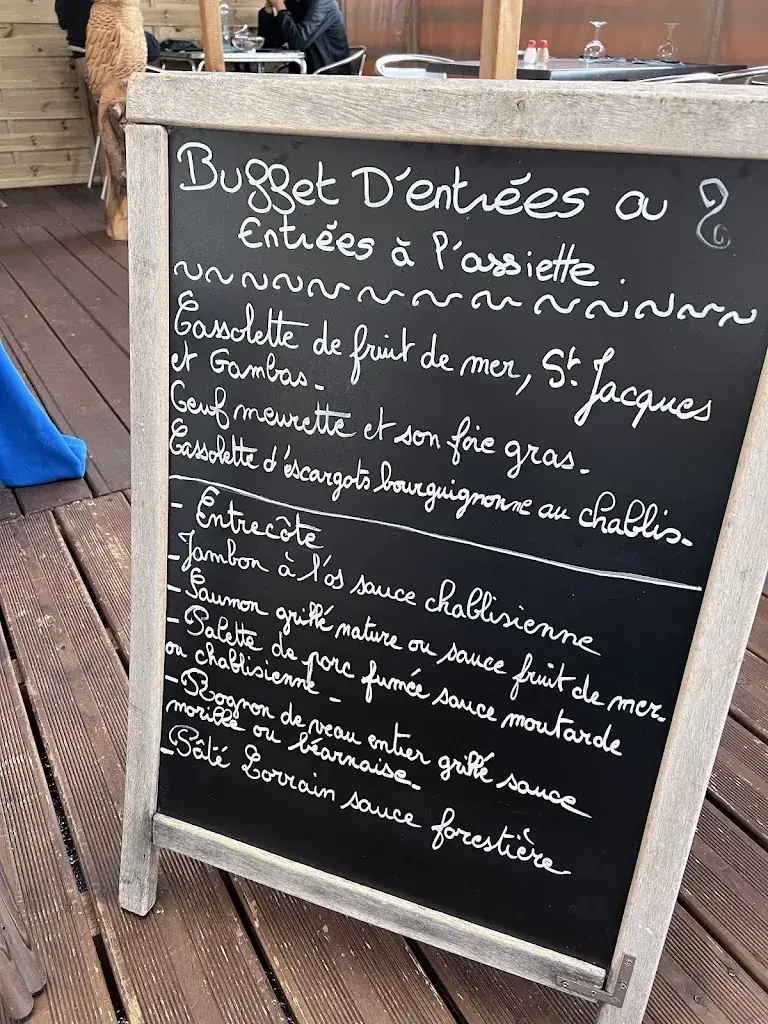 Buffet D'entrées ou
Entrées à l'assiette.
Cassolette de fruit de mer, St. Jacques
et Gambas.
Oeuf meurette et son foie gras.
Cassolette d'éscargots bourguignonne au chablis.
- Entrecôte
- Jambon à l'os sauce chablisienne
- Saumon grillé nature ou sauce fruit de mer.
- Palette de porc fumée sauce moutarde
ou chablisienne -
- Rognon de veau entier grillé sauce
morille ou béarnaise.
- Pâté Lorrain sauce forestière